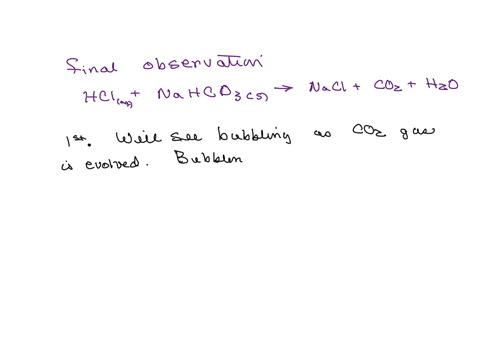 final observation
HCl(aq) + NaHCO3(s) → NaCl + CO2 + H2O
1st. Will see bubbling as CO2 gas
is evolved. Bubblin